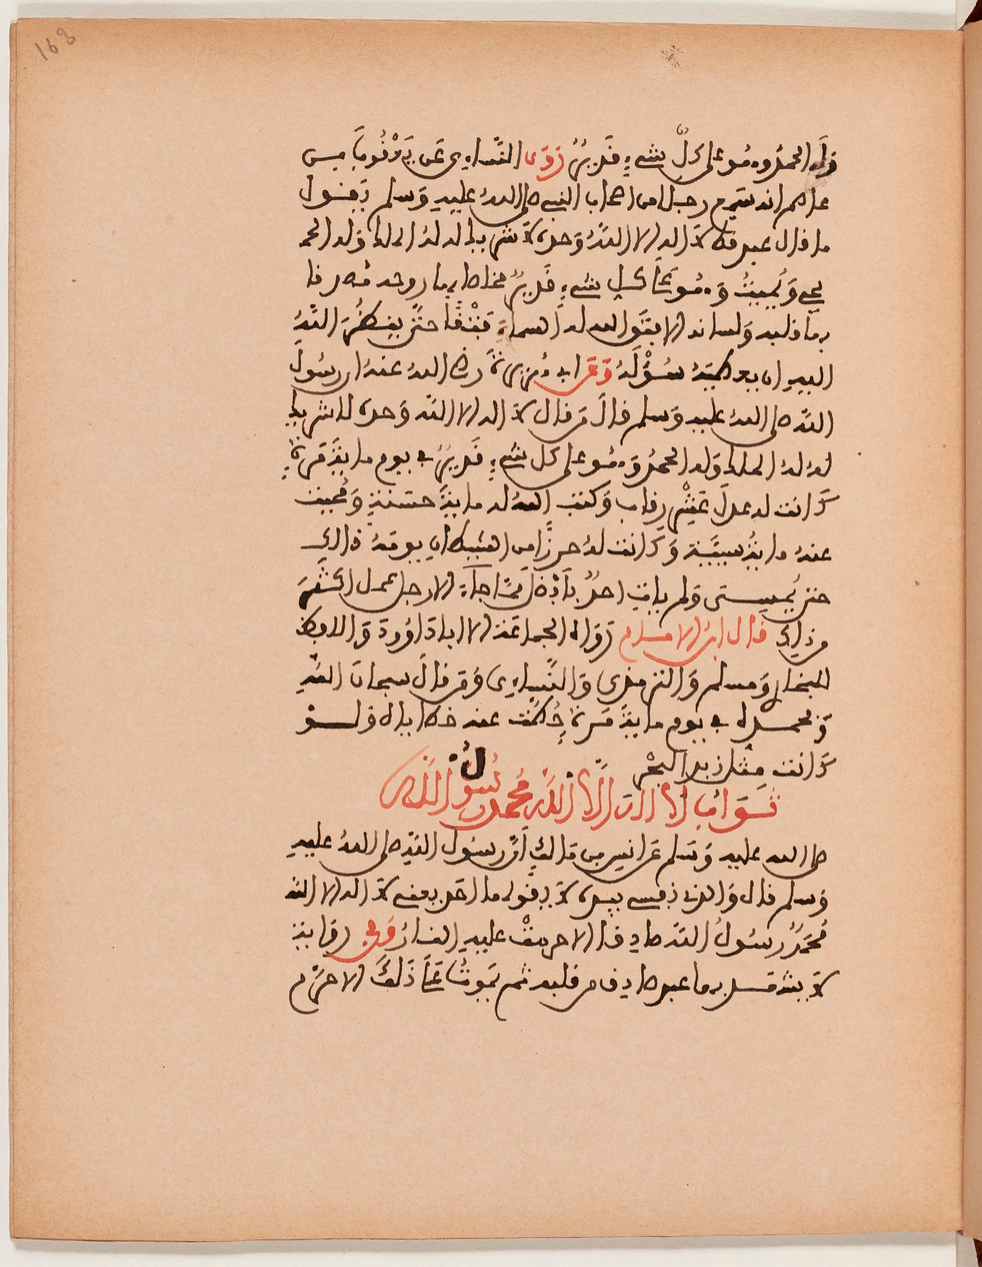 168
وله الحمد وهو على كل شيء قدير روى النساءي عن يعقوب بن
عاصم انه سمع رجلا من اصحاب النبي صلى الله عليه وسلم يقول
ما قال عبد قط لا اله الا الله وحده لا شريك له له الملك وله الحمد
يحي ويميت وهو على كل شيء قدير مخلصا بها روحه مصدقا
بها قلبه ولسانه الا فتق الله له السماء فتقا حتى ينظر الله
اليه ان يعطيه سؤله وعن ابي هريرة رضي الله عنه ان رسول
الله صلى الله عليه وسلم قال من قال لا اله الا الله وحده لا شريك
له له الملك وله الحمد وهو على كل شيء قدير في يوم ماية مرة
كانت له عدل عشر رقاب وكتب الله له ماية حسنة ومحيت
عنه ماية سيية وكانت له حرزا من الشيطان يومه ذالك
حتى يمسي ولم يات احد بافضل مما جاء الا رجل عمل اكثر
من ذلك قال ابن الامام رواه الجماعة الا ابا داوود ولفظ
البخاري ومسلم والترمذي والنساءي ومن قال سبحان الله
وبحمده في يوم ماية مرة حطت عنه خطاياه ولو
كانت مثل زبد البحر
ثواب لا اله الا الله محمد رسول الله
صلى الله عليه وسلم عن انس بن مالك ان رسول الله صلى الله عليه
وسلم قال والذي نفسي بيده لا يقولها احد يعني لا اله الا الله
محمد رسول الله صادقا الا حرمت عليه النار وفي رواية
لا يشهد بها عبد صادق من قلبه ثم يموت على ذلك الا حرم